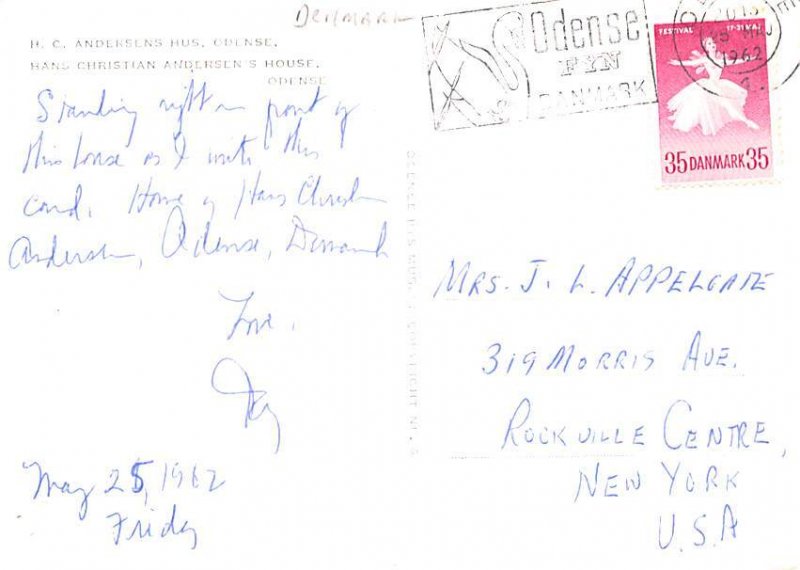 DENMARK
H. C. ANDERSENS HUS, ODENSE.
HANS CHRISTIAN ANDERSEN'S HOUSE,
ODENSE
Standing right in front of
this house as I write this
card. Home of Hans Christian
Andersen, Odense, Denmark
Love,
May 25, 1962
Friday
Odense
FYN
DANMARK
1962
FESTIVAL 17-31 MAJ
35 DANMARK 35
MRS. J. L. APPELGATE
319 MORRIS AVE.
ROCKVILLE CENTRE,
NEW YORK
U.S.A